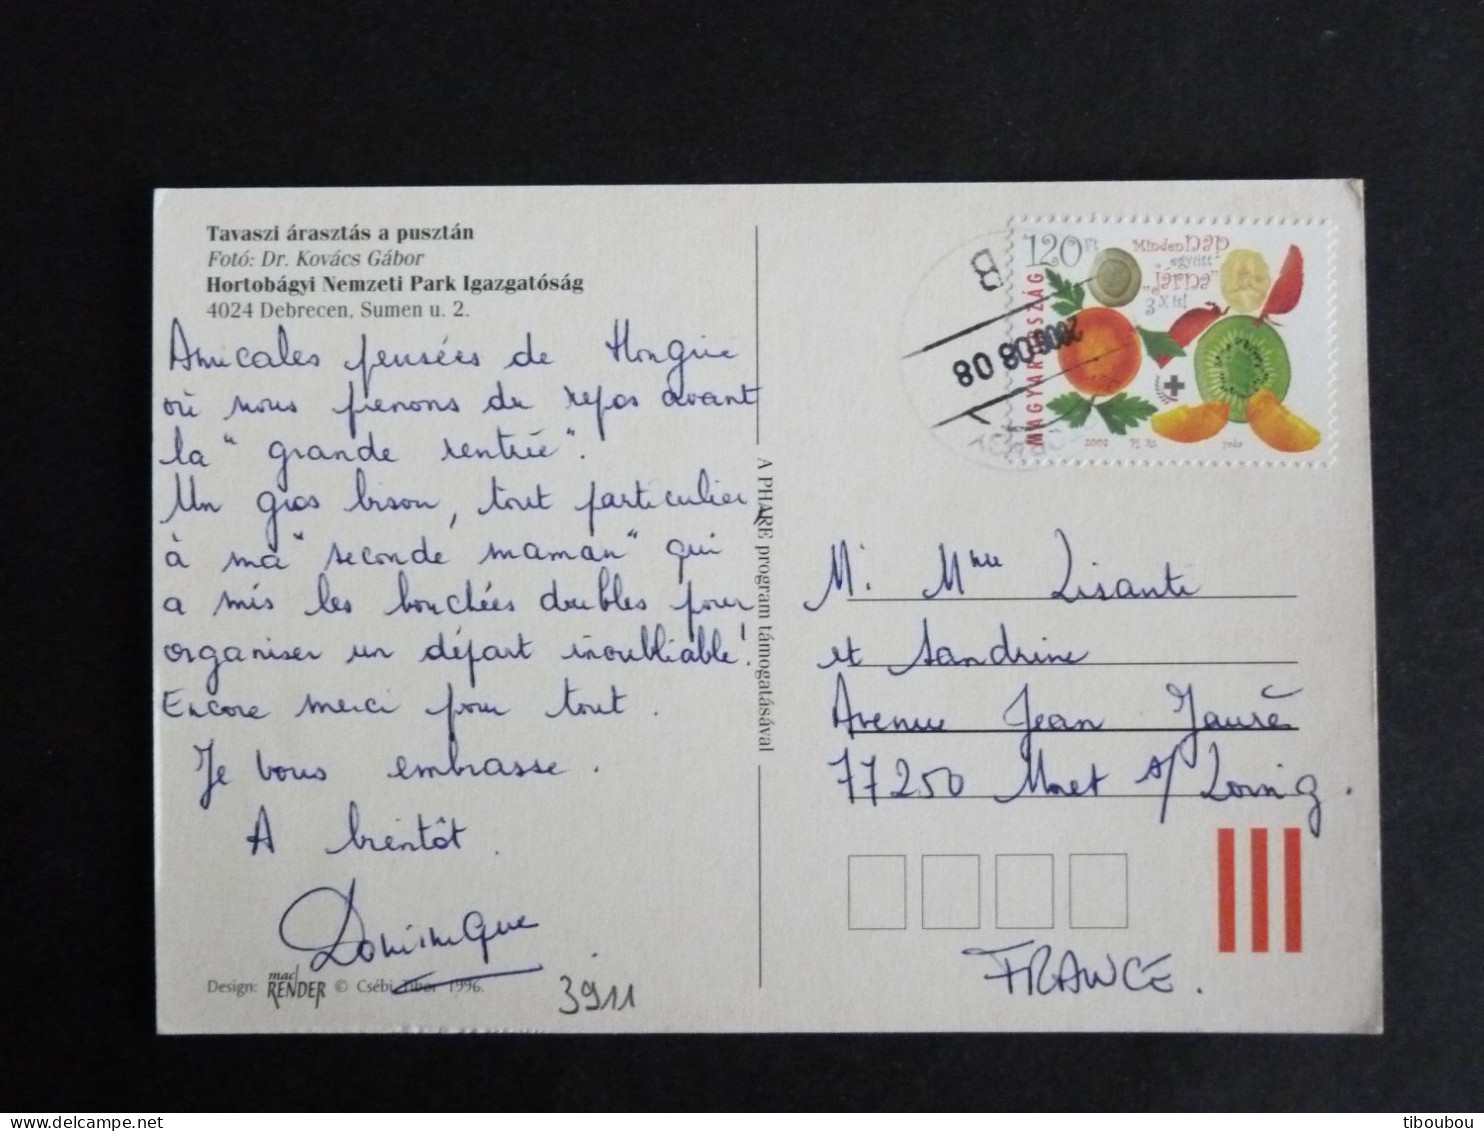 Tavaszi árasztás a pusztán
Fotó: Dr. Kovács Gábor
Hortobágyi Nemzeti Park Igazgatóság
4024 Debrecen, Sumen u. 2.
Amicales pensées de Hongrie
où nous prenons du repos avant
la "grande rentrée".
Un gros bison, tout particulier
à ma "seconde maman" qui
a mis les bouchées doubles pour
organiser un départ inoubliable!
Encore merci pour tout.
Je vous embrasse.
A bientôt.
Dominique
Design: mac RENDER © Csébi Tibor 1996.
3911
A PHARE program támogatásával
B
2008 08 08
120 Ft
Minden nap
együtt
"járna"
3 x is!
MAGYARORSZÁG
2008
M. Mme Lisanti
et Sandrine
Avenue Jean Jaurè
77250 Moret s/ Loing.
FRANCE.
tiboubou